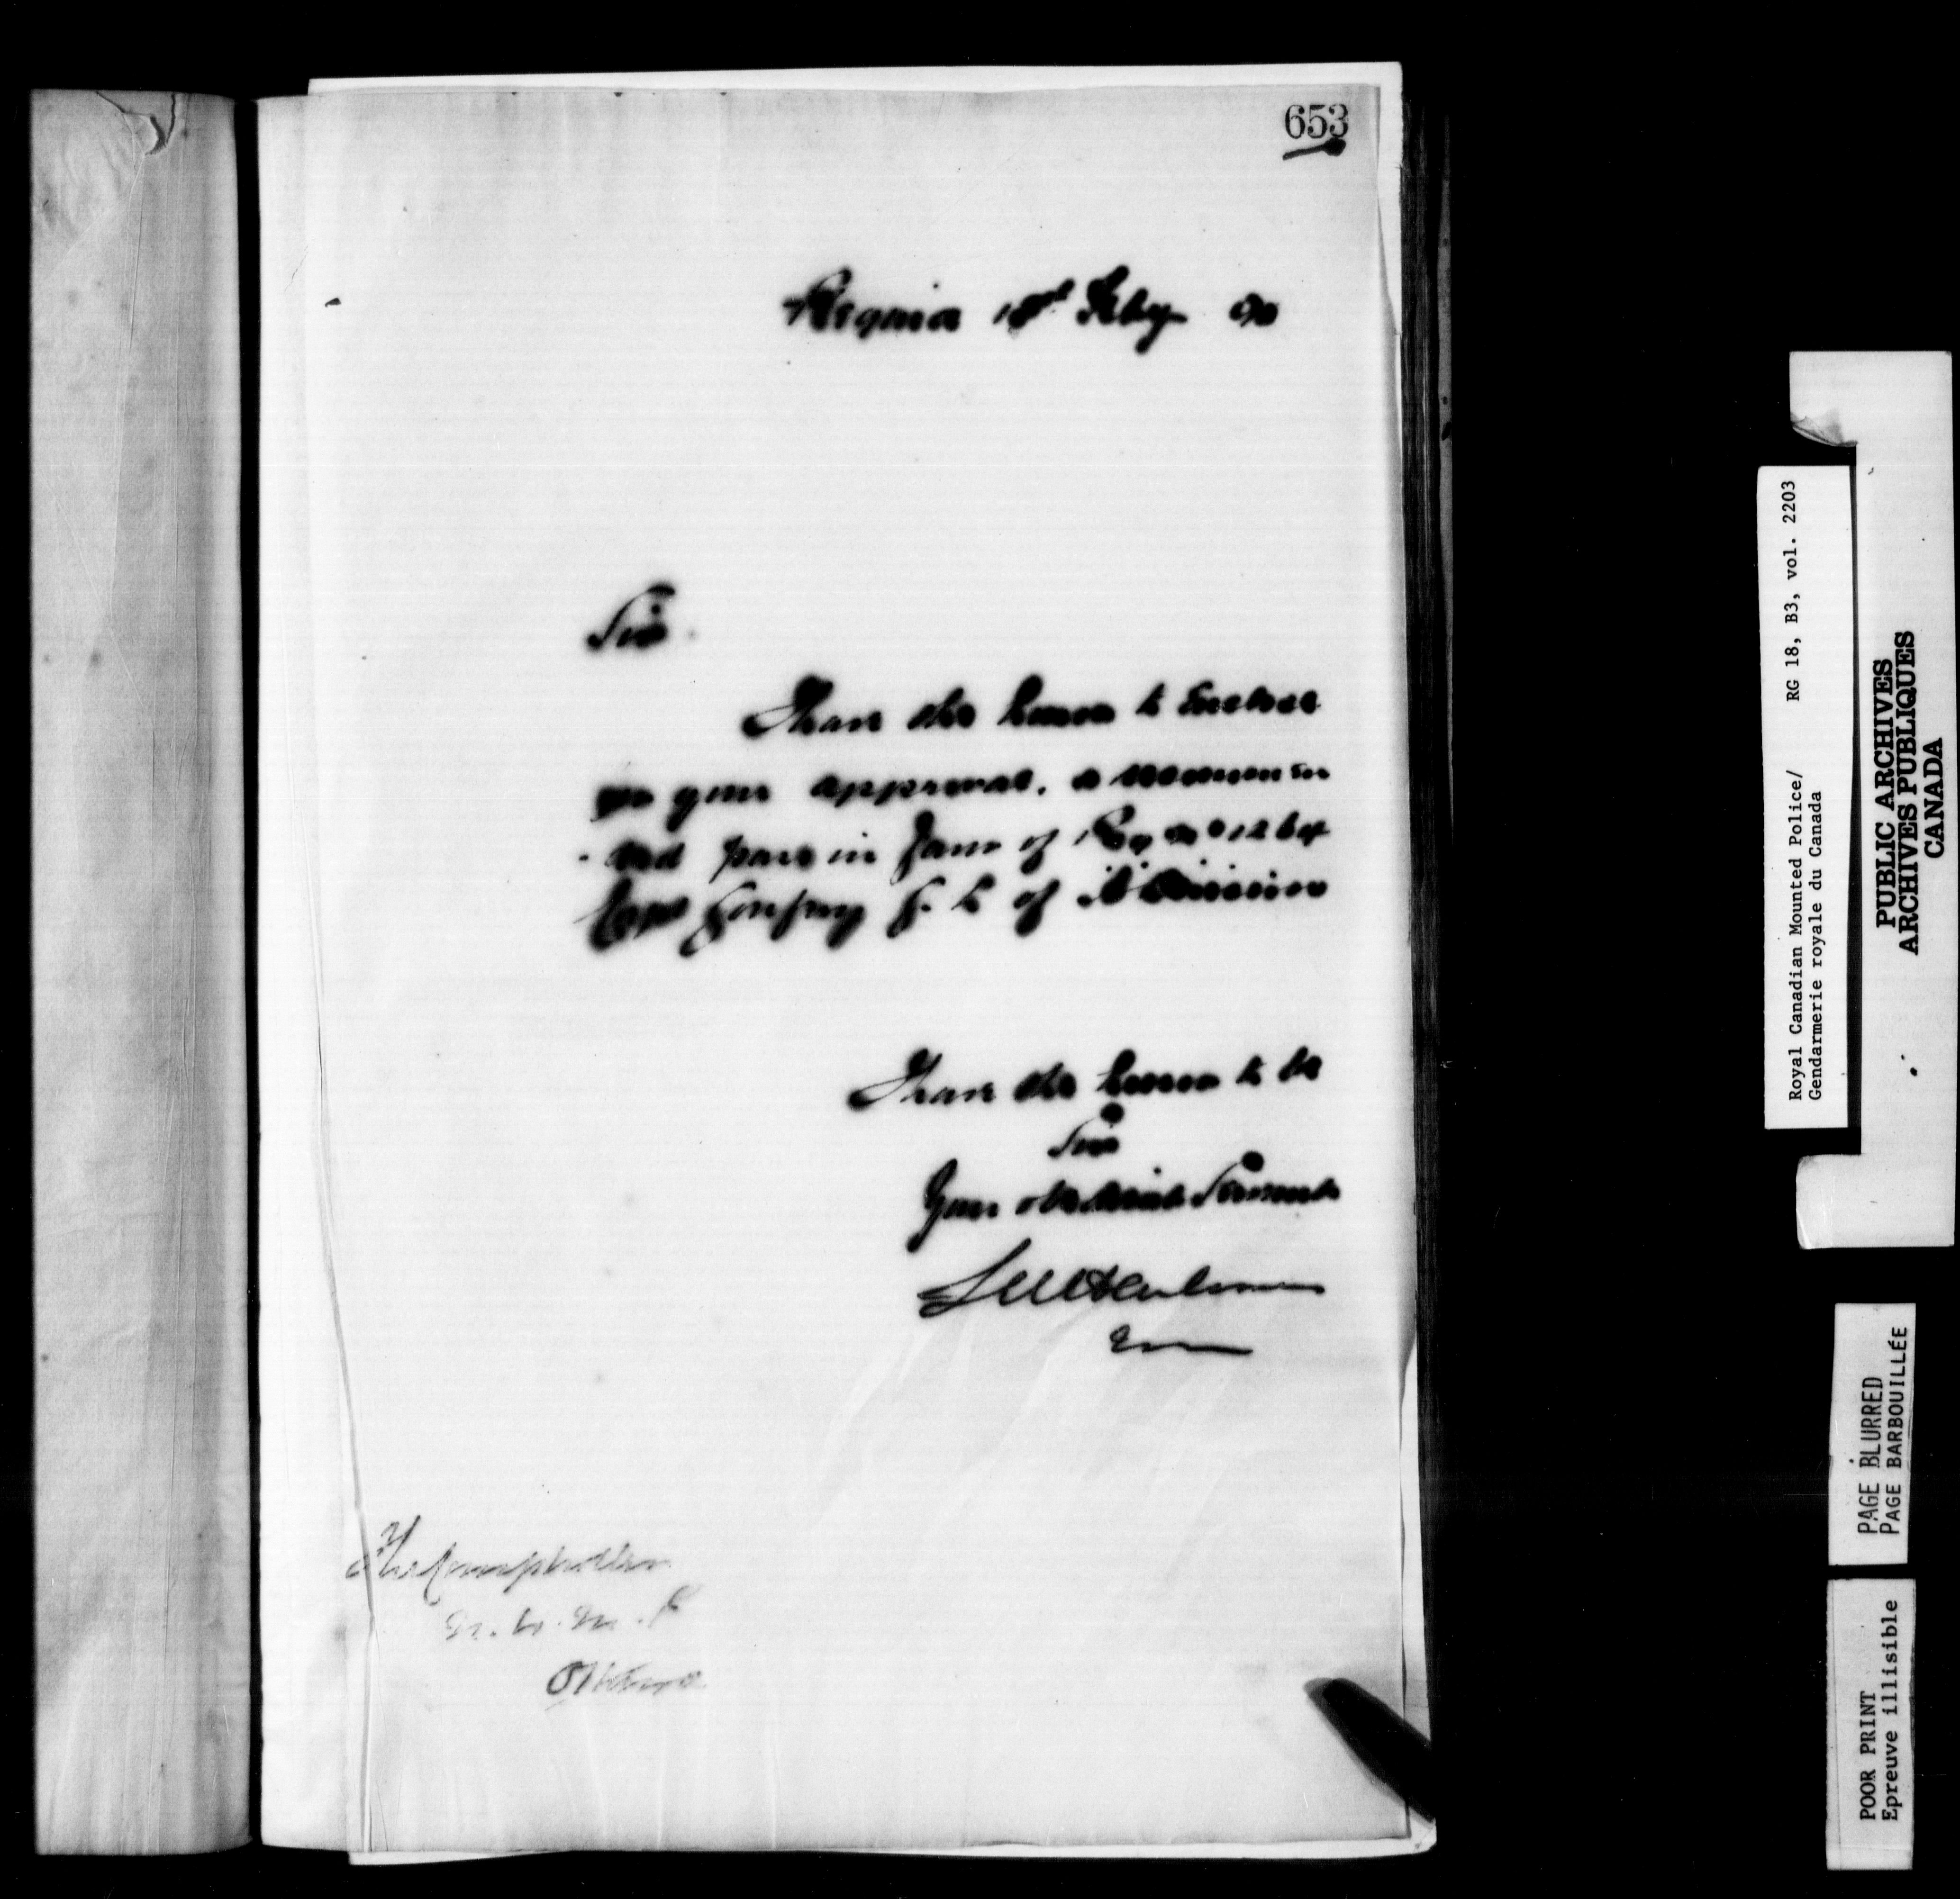 653
Regina 18th Feby 90
Sir.
I have the honor to enclose
for your approval, a recommen
ded pass in favor of Reg No 1264
Corp Godfrey F. C of "A" Division
I have the honor to be
Sir
Your obedient Servant
The Comptroller
N.W.M.P
Ottawa
Royal Canadian Mounted Police/ RG 18, B3, vol. 2203
Gendarmerie royale du Canada
PUBLIC ARCHIVES
ARCHIVES PUBLIQUES
CANADA
PAGE BLURRED
PAGE BARBOUILLÉE
POOR PRINT
Epreuve illisible